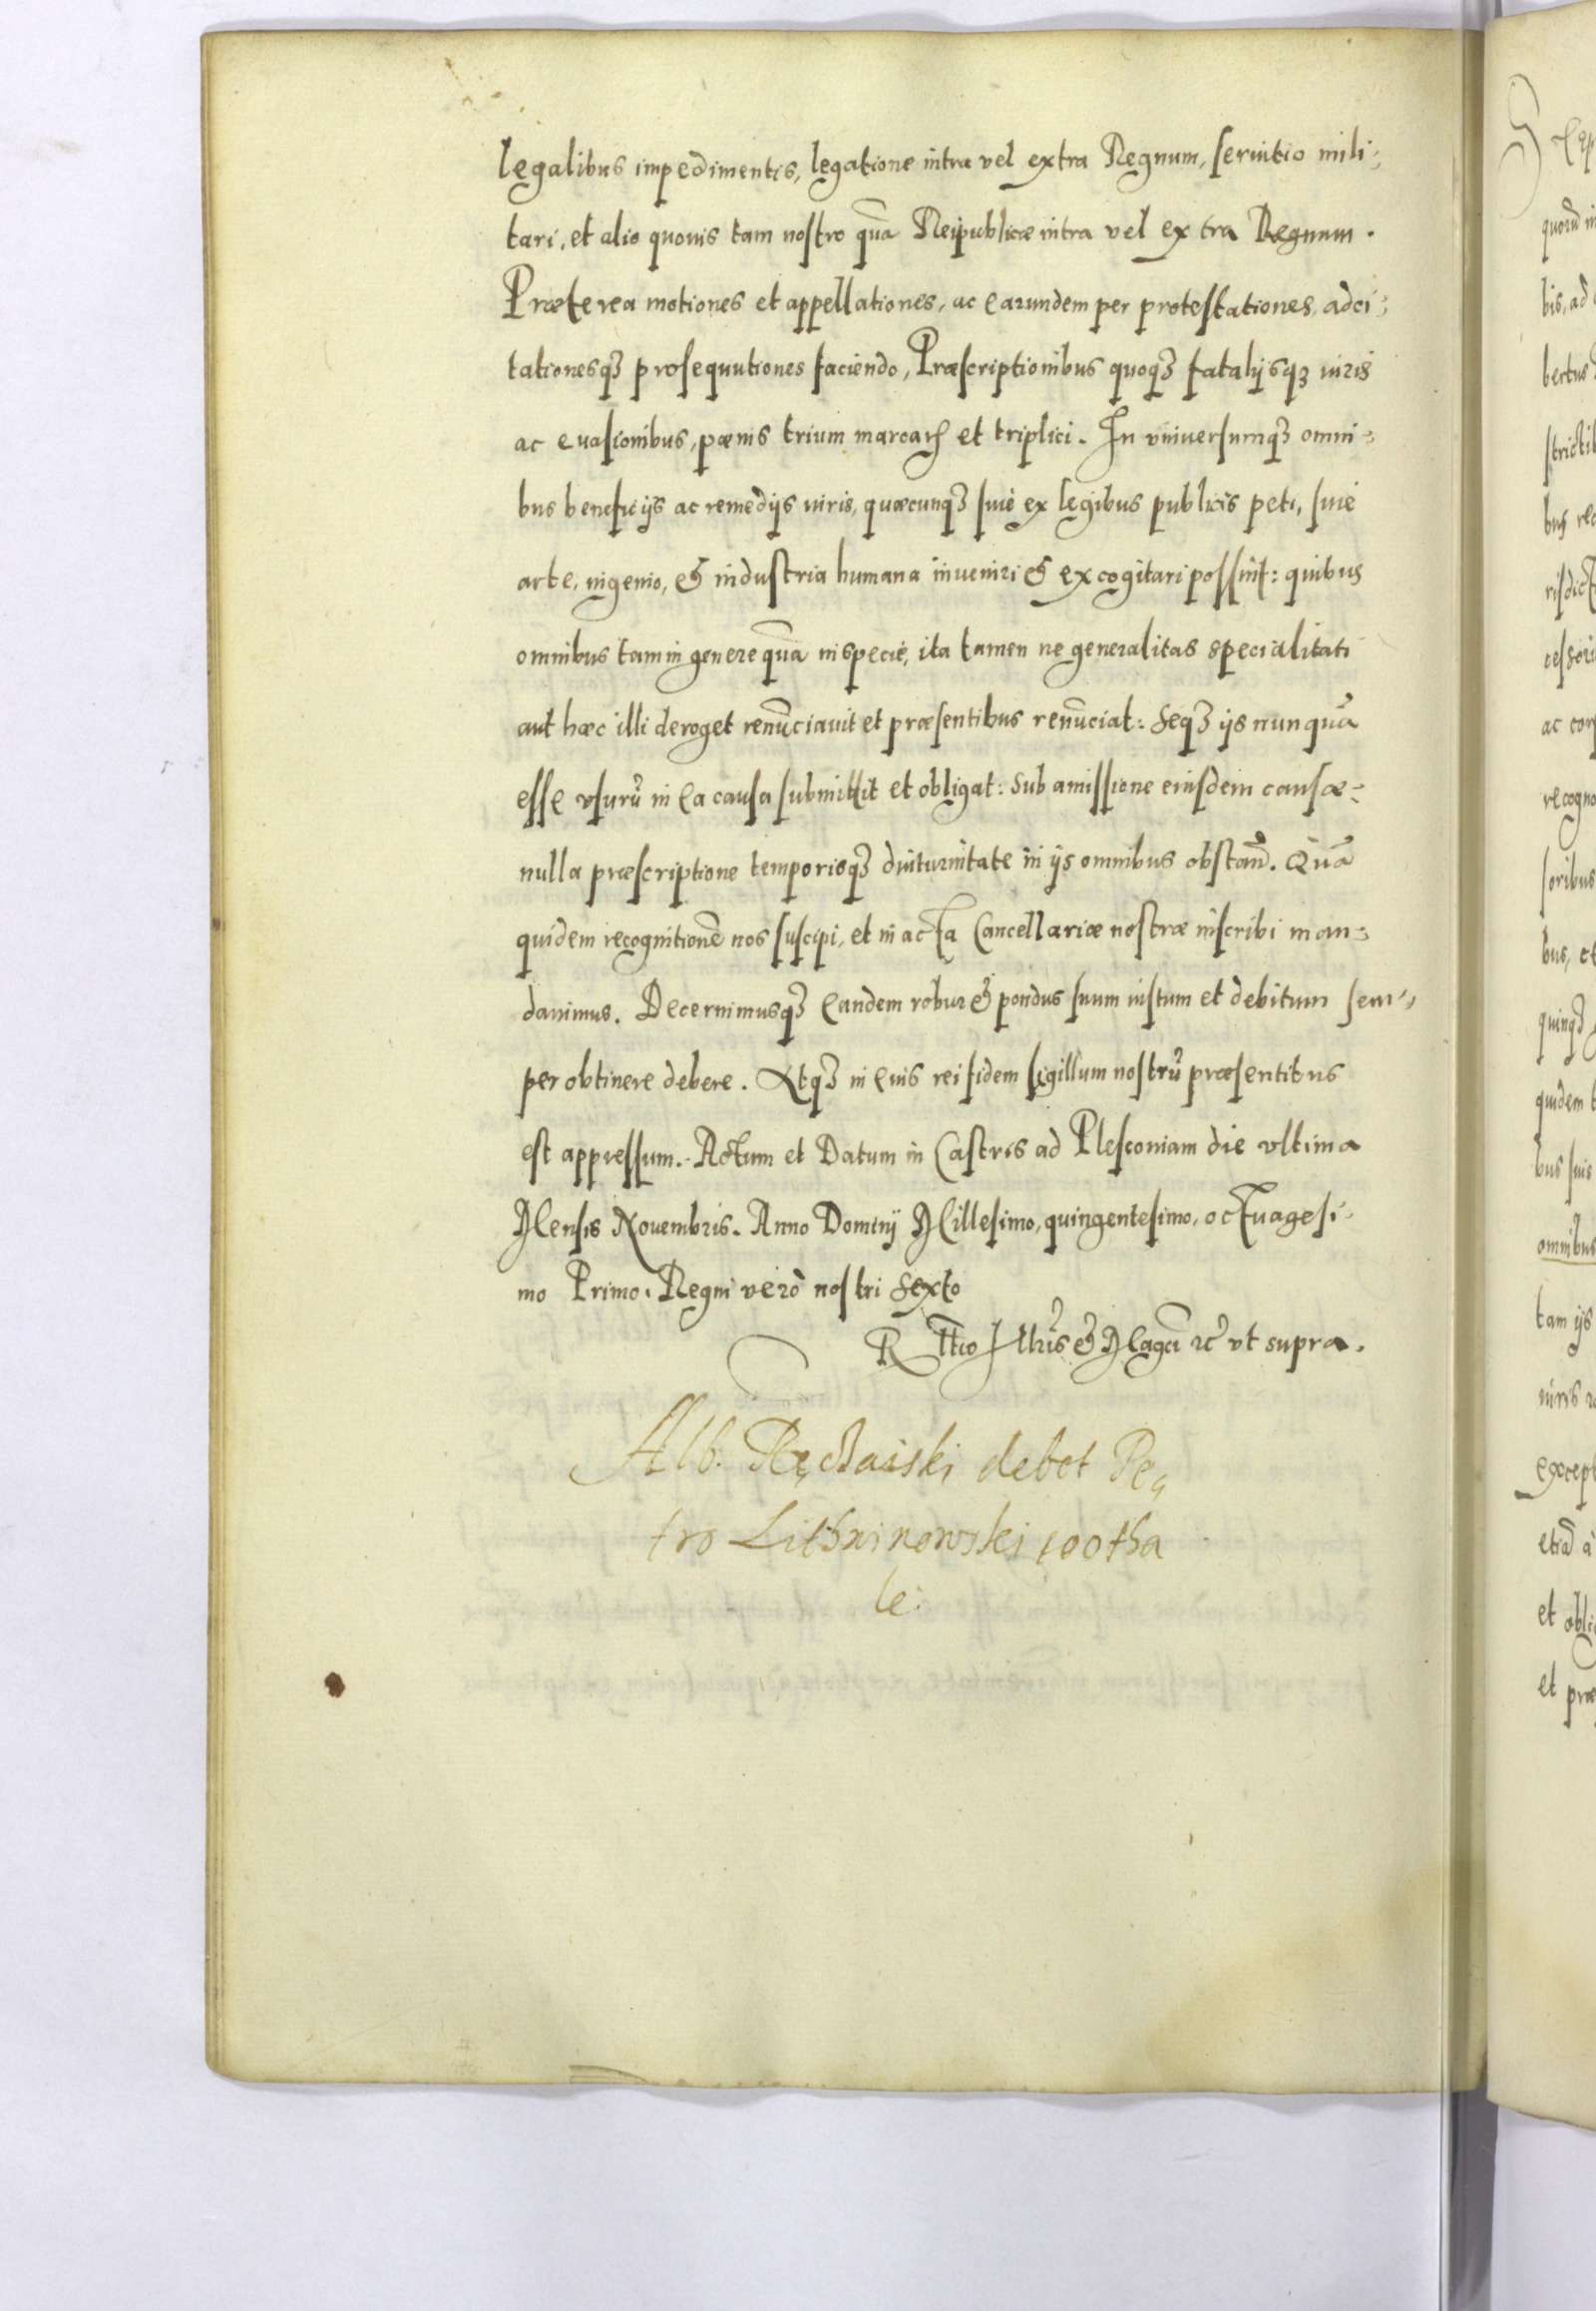 legalibus impedimentis, legatione intra vel extra Regnum, seruitio mili:
tari, et alio quouis tam nostro quã Reipublicæ intra vel extra Regnum.
Præterea motiones et appellationes, ac earundem per protestationes, adci:
tationesqȝ prosequutiones faciendo, Præscriptionibus quoqȝ fatalijsqȝ iuris
ac euasionibus, pœnis trium marcarꝝ et triplici. In vniuersumqȝ omni:
bus beneficijs ac remedijs iuris, quæcunqȝ siue ex legibus publicis peti, siue
arte, ingenio, & industria humana inueniri & excogitari possint: quibus
omnibus tam in genere quã in specie, ita tamen ne generalitas specialitati
aut hæc illi deroget renũciauit et præsentibus renũciat: Seqȝ ijs nunquã
esse vsurũ in ea causa submittit et obligat: Sub amissione eiusdem causæ:
nulla præscriptione temporisqȝ diuturnitate in ijs omnibus obstañ. Quã
quidem recognitionẽ nos suscipi, et in acta Cancellariæ nostræ inscribi man:
dauimus. Decernimusqȝ eandem robur & pondus suum iustum et debitum sem:
per obtinere debere. Atqȝ in euis rei fidem sigillum nostrũ præsentibus
est appressum. Actum et Datum in Castris ad Plesconiam die vltima
Mensis Nouembris. Anno Dominj Millesimo, quingentesimo, octuagesi:
mo Primo. Regni verò nostri Sexto
R ttio Illris & Magci ꝛc vt supra.
Alb. debet Pe
tro 100 tha
le:
quorũ in
bis, ad
bertus
bus
ac
recogno
soribus
bus, et
quidem
bus suis
omnibus
tam ijs
iuris
except
etiã à
et obli
et præ